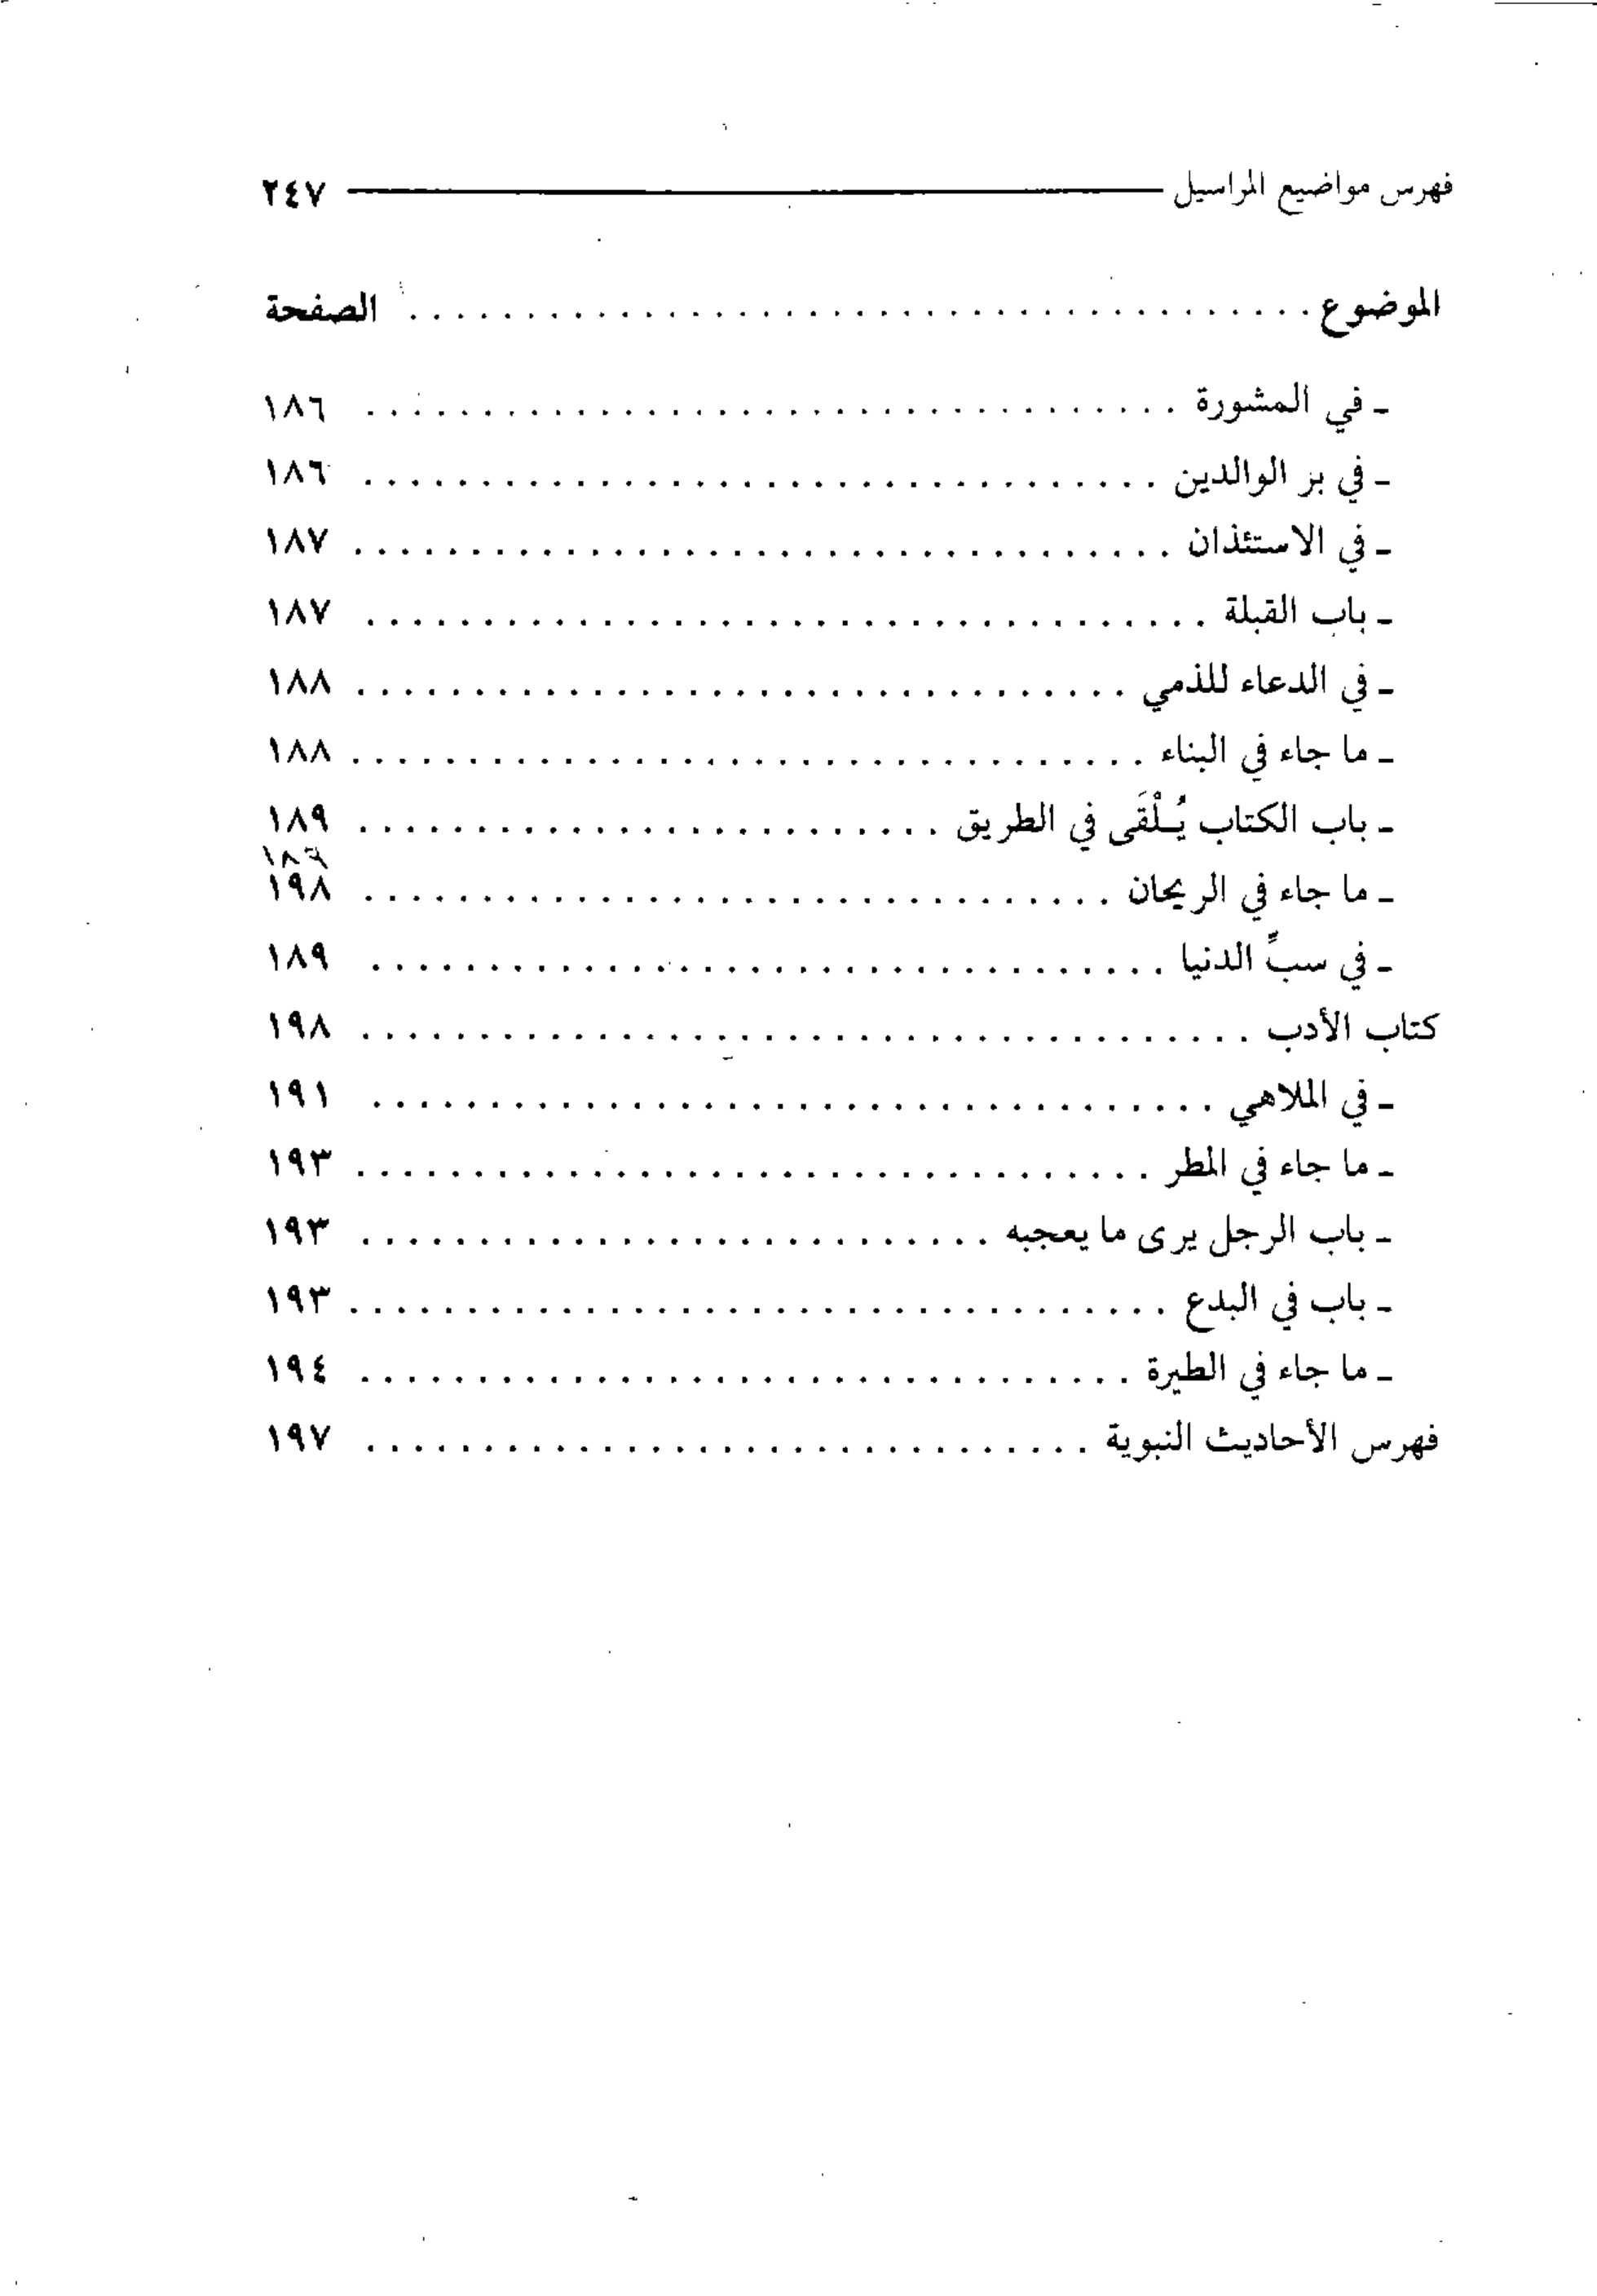 فهرس مواضيع المراسيل ٢٤٧
الموضوع . . . . . . . . . . الصفحة
ـ في المشورة . . . . . . . . . . ١٨٦
ـ في بر الوالدين . . . . . . . . . . ١٨٦
ـ في الاستئذان . . . . . . . . . . ١٨٧
ـ باب القبلة . . . . . . . . . . ١٨٧
ـ في الدعاء للذمي . . . . . . . . . . ١٨٨
ـ ما جاء في البناء . . . . . . . . . . ١٨٨
ـ باب الكتاب يُلْقَى في الطريق . . . . . . . . . . ١٨٩
١٨٩
ـ ما جاء في الريحان . . . . . . . . . . ١٩٨
ـ في سبِّ الدنيا . . . . . . . . . . ١٨٩
كتاب الأدب . . . . . . . . . . ١٩٨
ـ في الملاهي . . . . . . . . . . ١٩١
ـ ما جاء في المطر . . . . . . . . . . ١٩٣
ـ باب الرجل يرى ما يعجبه . . . . . . . . . . ١٩٣
ـ باب في البدع . . . . . . . . . . ١٩٣
ـ ما جاء في الطيرة . . . . . . . . . . ١٩٤
فهرس الأحاديث النبوية . . . . . . . . . . ١٩٧